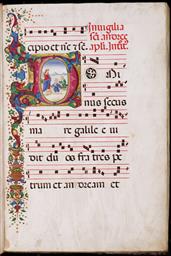 In uigilia
sc̄i andree
capio et n̄c ⁊ se. apl̓i. Introit̄.
Omi
nus secus
ma re galilee ui
dit duos fratres pe
trum et andream et